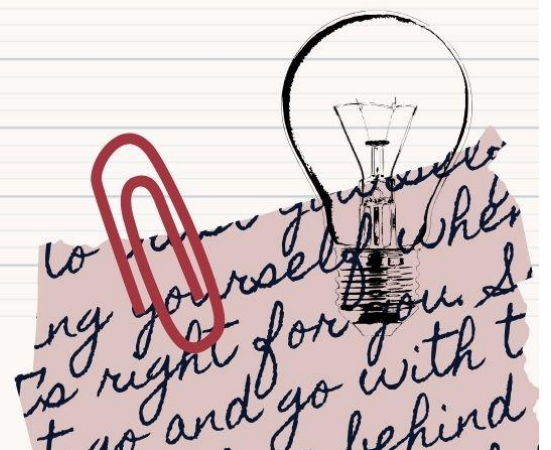 to
ing yourself when
's right for you. S
t go and go with t
behind